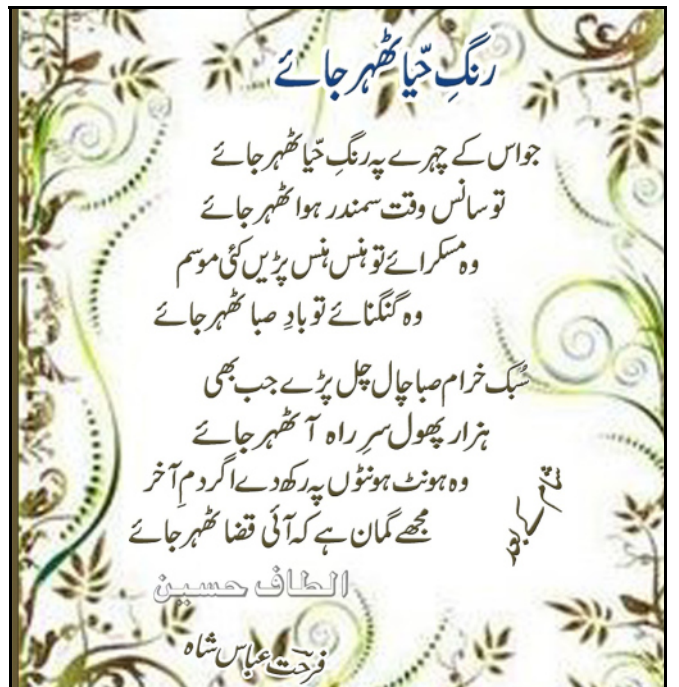 رنگِ حّیا ٹھہر جائے
جو اس کے چہرے پہ رنگِ حّیا ٹھہر جائے
تو سانس وقت سمندر ہوا ٹھہر جائے
وہ مسکرائے تو ہنس ہنس پڑیں کئی موسم
وہ گنگنائے تو بادِ صبا ٹھہر جائے
سُبک خرام صبا چال چل پڑے جب بھی
ہزار پھول سرِ راہ آ ٹھہر جائے
وہ ہونٹ ہونٹوں پہ رکھ دے اگر دمِ آخر
مجھے گمان ہے کہ آئی قضا ٹھہر جائے
شام کے بعد
الطاف حسین
فرحت عباس شاہ